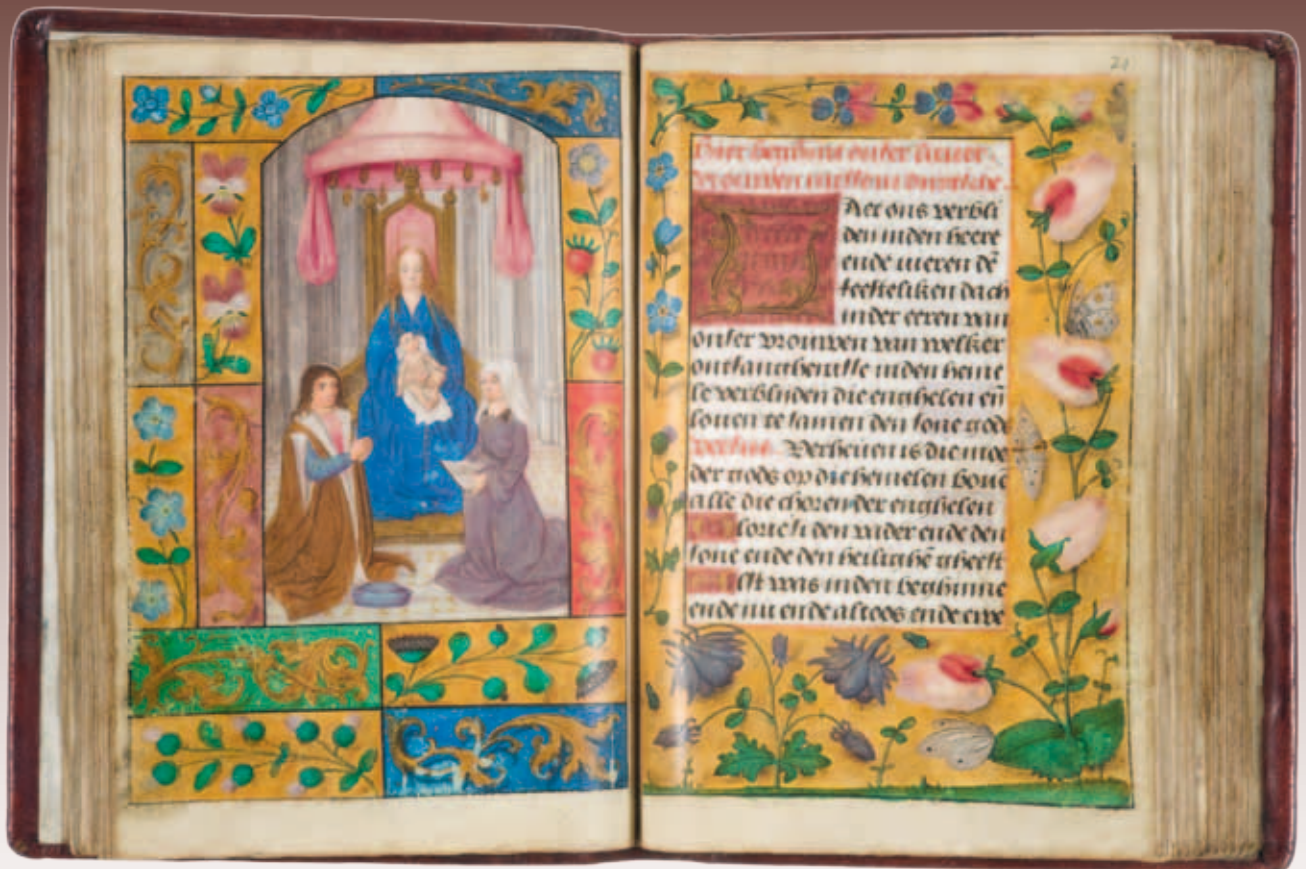 Hier beghint onser lieuer
vrouwen
Aet ons verbli
den in den heere
ende vieren dē
feesteliken dach
in der eeren van
onser vrouwen van welker
ontfanghenisse in den heme
le verbliden die enghelen eñ
louen te samen den sone gods
versus. Verheuen is die moe
der gods op die hemelen bouē
alle die choren der enghelen
Glorie si den vader ende den
sone ende den heilighē gheest
Alst was in den beghinne
ende nu ende altoos ende ewe